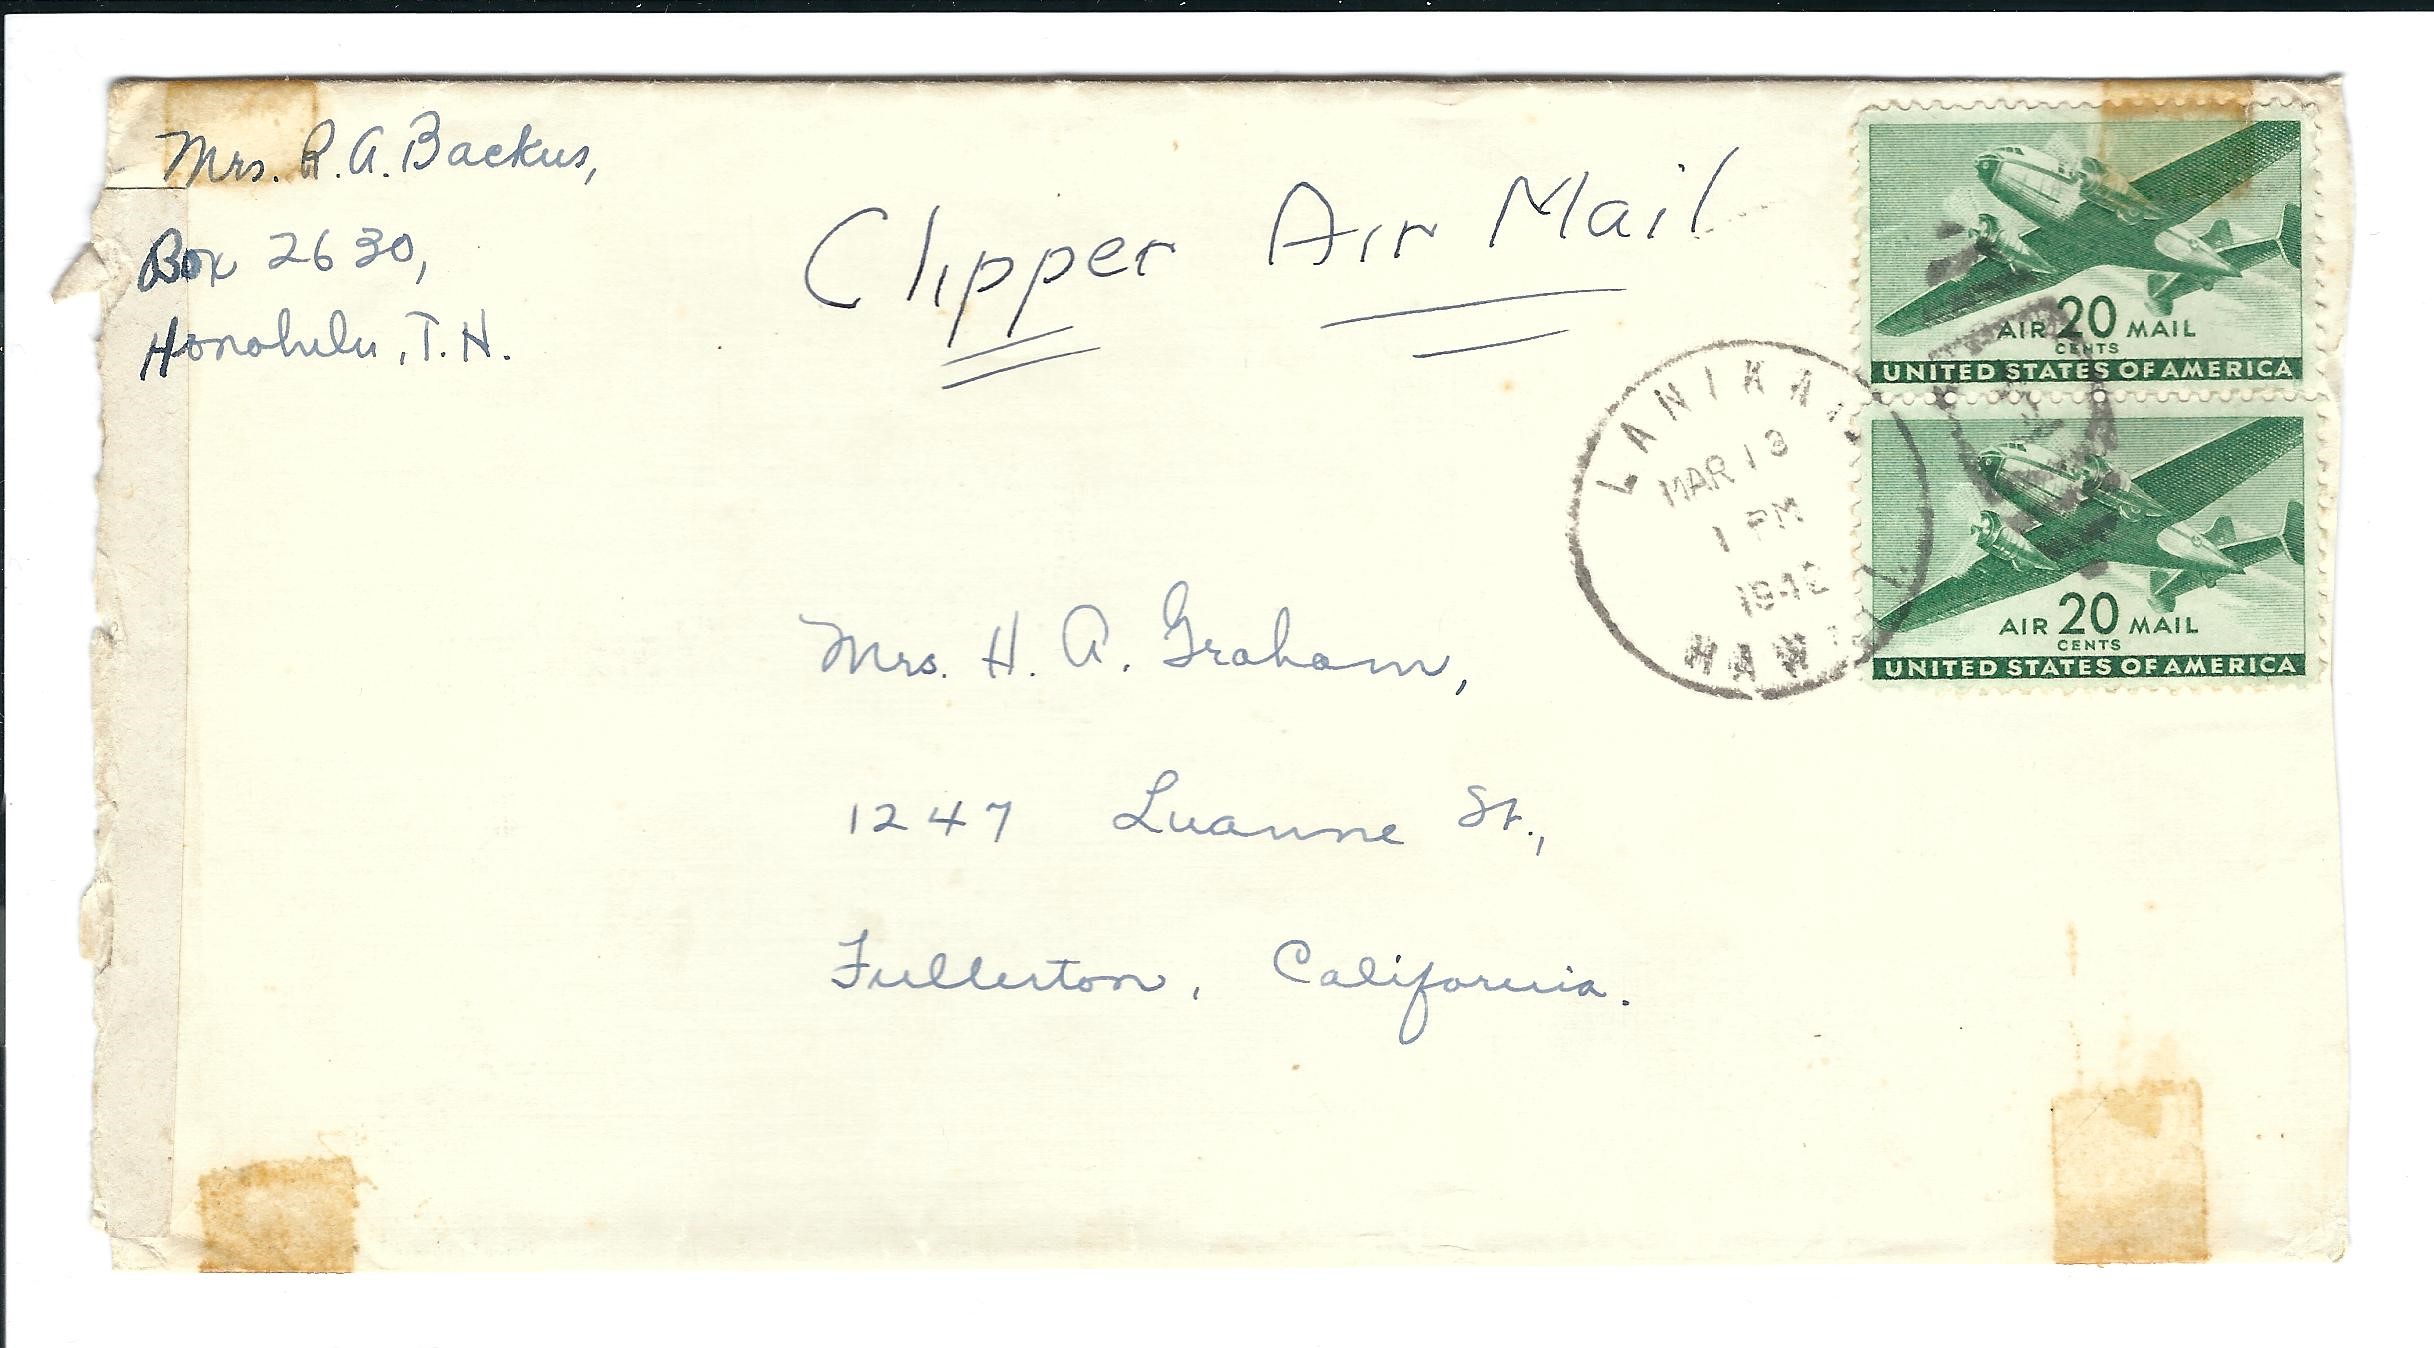 Mrs. R. A. Backus,
Box 2630,
Honolulu, T. H.
Clipper Air Mail
AIR 20 MAIL
CENTS
UNITED STATES OF AMERICA
LANIKAI
MAR 13
1 PM
1942
HAWAII
AIR 20 MAIL
CENTS
UNITED STATES OF AMERICA
Mrs. H. A. Graham,
1247 Luanne St.,
Fullerton, California.